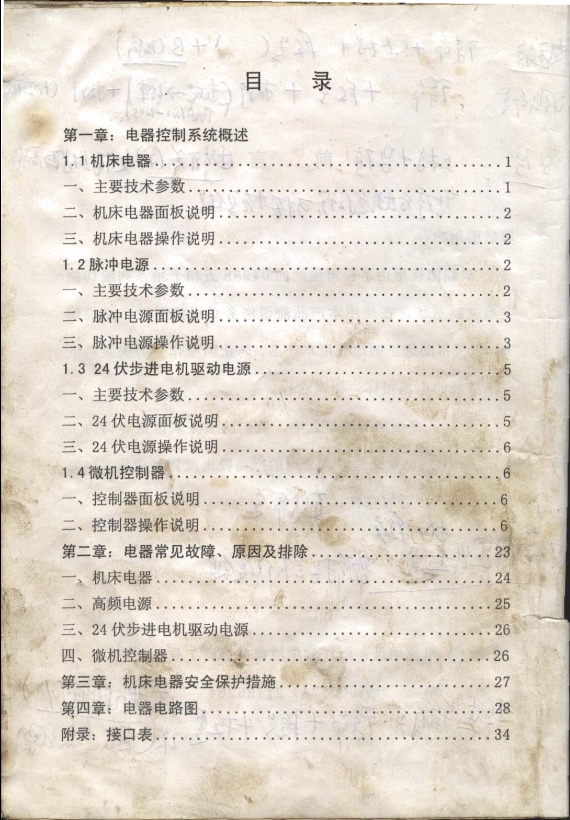 目 录
第一章：电器控制系统概述
1.1机床电器 1
一、主要技术参数 1
二、机床电器面板说明 2
三、机床电器操作说明 2
1.2脉冲电源 2
一、主要技术参数 2
二、脉冲电源面板说明 3
三、脉冲电源操作说明 3
1.3 24伏步进电机驱动电源 5
一、主要技术参数 5
二、24伏电源面板说明 5
三、24伏电源操作说明 6
1.4微机控制器 6
一、控制器面板说明 6
二、控制器操作说明 6
第二章：电器常见故障、原因及排除 23
一、机床电器 24
二、高频电源 25
三、24伏步进电机驱动电源 26
四、微机控制器 26
第三章：机床电器安全保护措施 27
第四章：电器电路图 28
附录：接口表 34